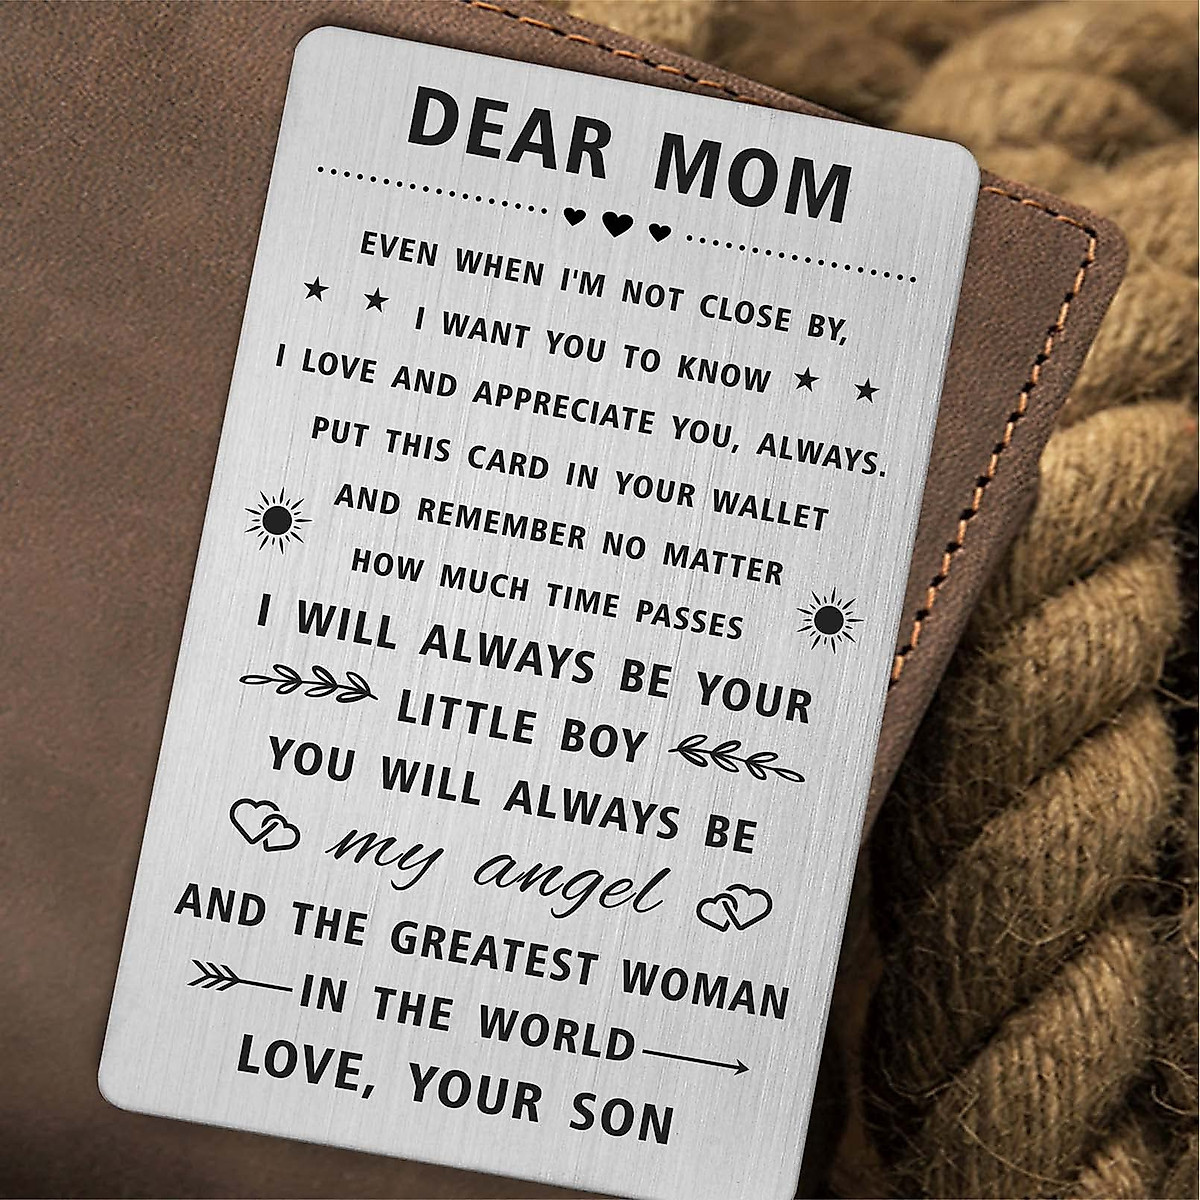 DEAR MOM
EVEN WHEN I'M NOT CLOSE BY,
I WANT YOU TO KNOW
I LOVE AND APPRECIATE YOU, ALWAYS.
PUT THIS CARD IN YOUR WALLET
AND REMEMBER NO MATTER
HOW MUCH TIME PASSES
I WILL ALWAYS BE YOUR
LITTLE BOY
YOU WILL ALWAYS BE
my angel
AND THE GREATEST WOMAN
IN THE WORLD
LOVE, YOUR SON